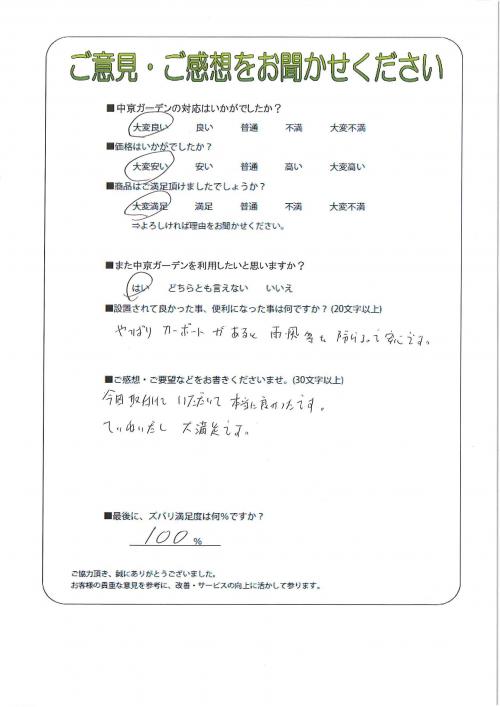 ご意見・ご感想をお聞かせください
■中京ガーデンの対応はいかがでしたか？
大変良い 良い 普通 不満 大変不満
■価格はいかがでしたか？
大変安い 安い 普通 高い 大変高い
■商品はご満足頂けましたでしょうか？
大変満足 満足 普通 不満 大変不満
⇒よろしければ理由をお聞かせください。
■また中京ガーデンを利用したいと思いますか？
はい どちらとも言えない いいえ
■設置されて良かった事、便利になった事は何ですか？(20文字以上)
やっぱり カーポート が あると 雨風 も 防げ です。
■ご感想・ご要望などをお書きくださいませ。(30文字以上)
今回 取付けて いただいて 本当に 良かったです。
ていねいだし 大満足です。
■最後に、ズバリ満足度は何%ですか？
100 %
ご協力頂き、誠にありがとうございました。
お客様の貴重な意見を参考に、改善・サービスの向上に活かして参ります。